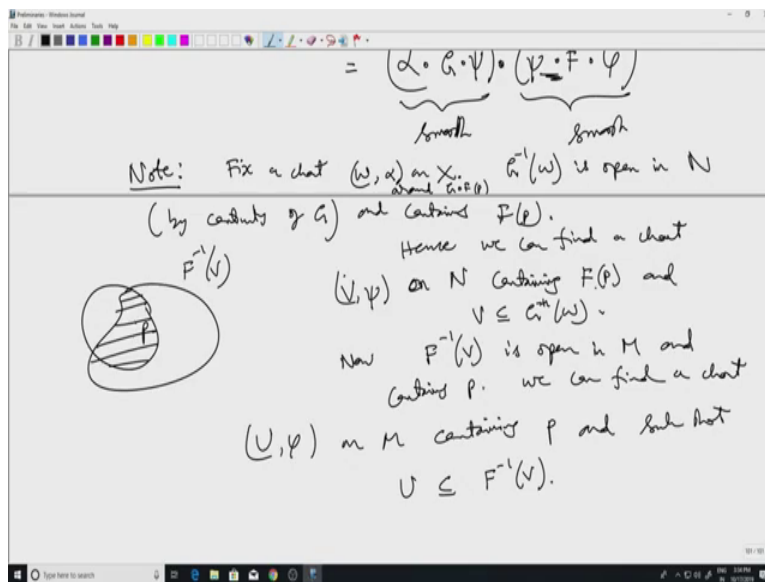 Preliminaries - Windows Journal
File Edit View Insert Actions Tools Help
B I
= (α · G · ψ) · (ψ · F · φ)
smooth smooth
Note: Fix a chart (W, α) on X. G⁻¹(W) is open in N
around G∘F(p)
(by continuity of G) and contains F(p).
Hence we can find a chart
F⁻¹(V)
(V, ψ) on N containing F(p) and
V ⊆ G⁻¹(W).
P
Now F⁻¹(V) is open in M and
contains P. we can find a chart
(U, φ) on M containing P and such that
U ⊆ F⁻¹(V).
101 / 101
Type here to search
ENG 3:04 PM
IN 10/17/2019